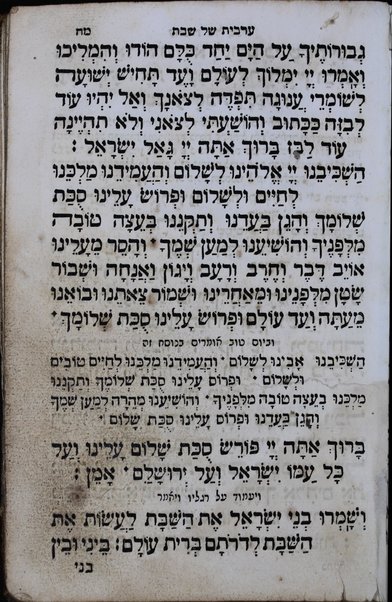 ערבית של שבת מח
גְבוּרוֹתֶיךָ עַל הַיָּם יַחַד כֻּלָּם הוֹדוּ וְהִמְלִיכוּ
וְאָמְרוּ יְיָ יִמְלוֹךְ לְעוֹלָם וָעֶד תָּחִישׁ יְשׁוּעָה
לְשׁוֹמְרֵי עֲנוּגָה תִּפְדֶּה לְצֹאנְךָ וְאַל יִהְיוּ עוֹד
לְבִזָּה כַּכָּתוּב וְהוֹשַׁעְתִּי לְצֹאנִי וְלֹא תִהְיֶינָה
עוֹד לָבַז בָּרוּךְ אַתָּה יְיָ גָּאַל יִשְׂרָאֵל :
הַשְׁכִּיבֵנוּ יְיָ אֱלֹהֵינוּ לְשָׁלוֹם וְהַעֲמִידֵנוּ מַלְכֵּנוּ
לְחַיִּים וּלְשָׁלוֹם וּפְרוֹשׂ עָלֵינוּ סֻכַּת
שְׁלוֹמֶךָ וְהָגֵן בַּעֲדֵנוּ וְתַקְּנֵנוּ בְּעֵצָה טוֹבָה
מִלְּפָנֶיךָ וְהוֹשִׁיעֵנוּ לְמַעַן שְׁמֶךָ • וְהָסֵר מֵעָלֵינוּ
אוֹיֵב דֶּבֶר וְחֶרֶב וְרָעָב וְיָגוֹן וַאֲנָחָה וּשְׁבוֹר
שָׂטָן מִלְּפָנֵינוּ וּמֵאַחֲרֵינוּ וּשְׁמוֹר צֵאתֵנוּ וּבוֹאֵנוּ
מֵעַתָּה וְעַד עוֹלָם וּפְרוֹשׂ עָלֵינוּ סֻכַּת שְׁלוֹמֶךָ •
וביום טוב אומרים בנוסח זה
הַשְׁכִּיבֵנוּ אָבִינוּ לְשָׁלוֹם • וְהַעֲמִידֵנוּ מַלְכֵּנוּ לְחַיִּים טוֹבִים
וּלְשָׁלוֹם • וּפְרוֹס עָלֵינוּ סֻכַּת שְׁלוֹמֶךָ וְתַקְּנֵנוּ
מַלְכֵּנוּ בְּעֵצָה טוֹבָה מִלְּפָנֶיךָ • וְהוֹשִׁיעֵנוּ מְהֵרָה לְמַעַן שְׁמֶךָ
וְהָגֵן בַּעֲדֵנוּ וּפְרוֹס עָלֵינוּ סֻכַּת שָׁלוֹם •
בָּרוּךְ אַתָּה יְיָ פּוֹרֵשׂ סֻכַּת שָׁלוֹם עָלֵינוּ וְעַל
כָּל עַמּוֹ יִשְׂרָאֵל וְעַל יְרוּשָׁלַםִ • אָמֵן :
ויעמוד על רגליו ויאמר
וְשָׁמְרוּ בְנֵי יִשְׂרָאֵל אֶת הַשַּׁבָּת לַעֲשׂוֹת אֶת
הַשַּׁבָּת לְדֹרֹתָם בְּרִית עוֹלָם : בֵּינִי וּבֵין
בני